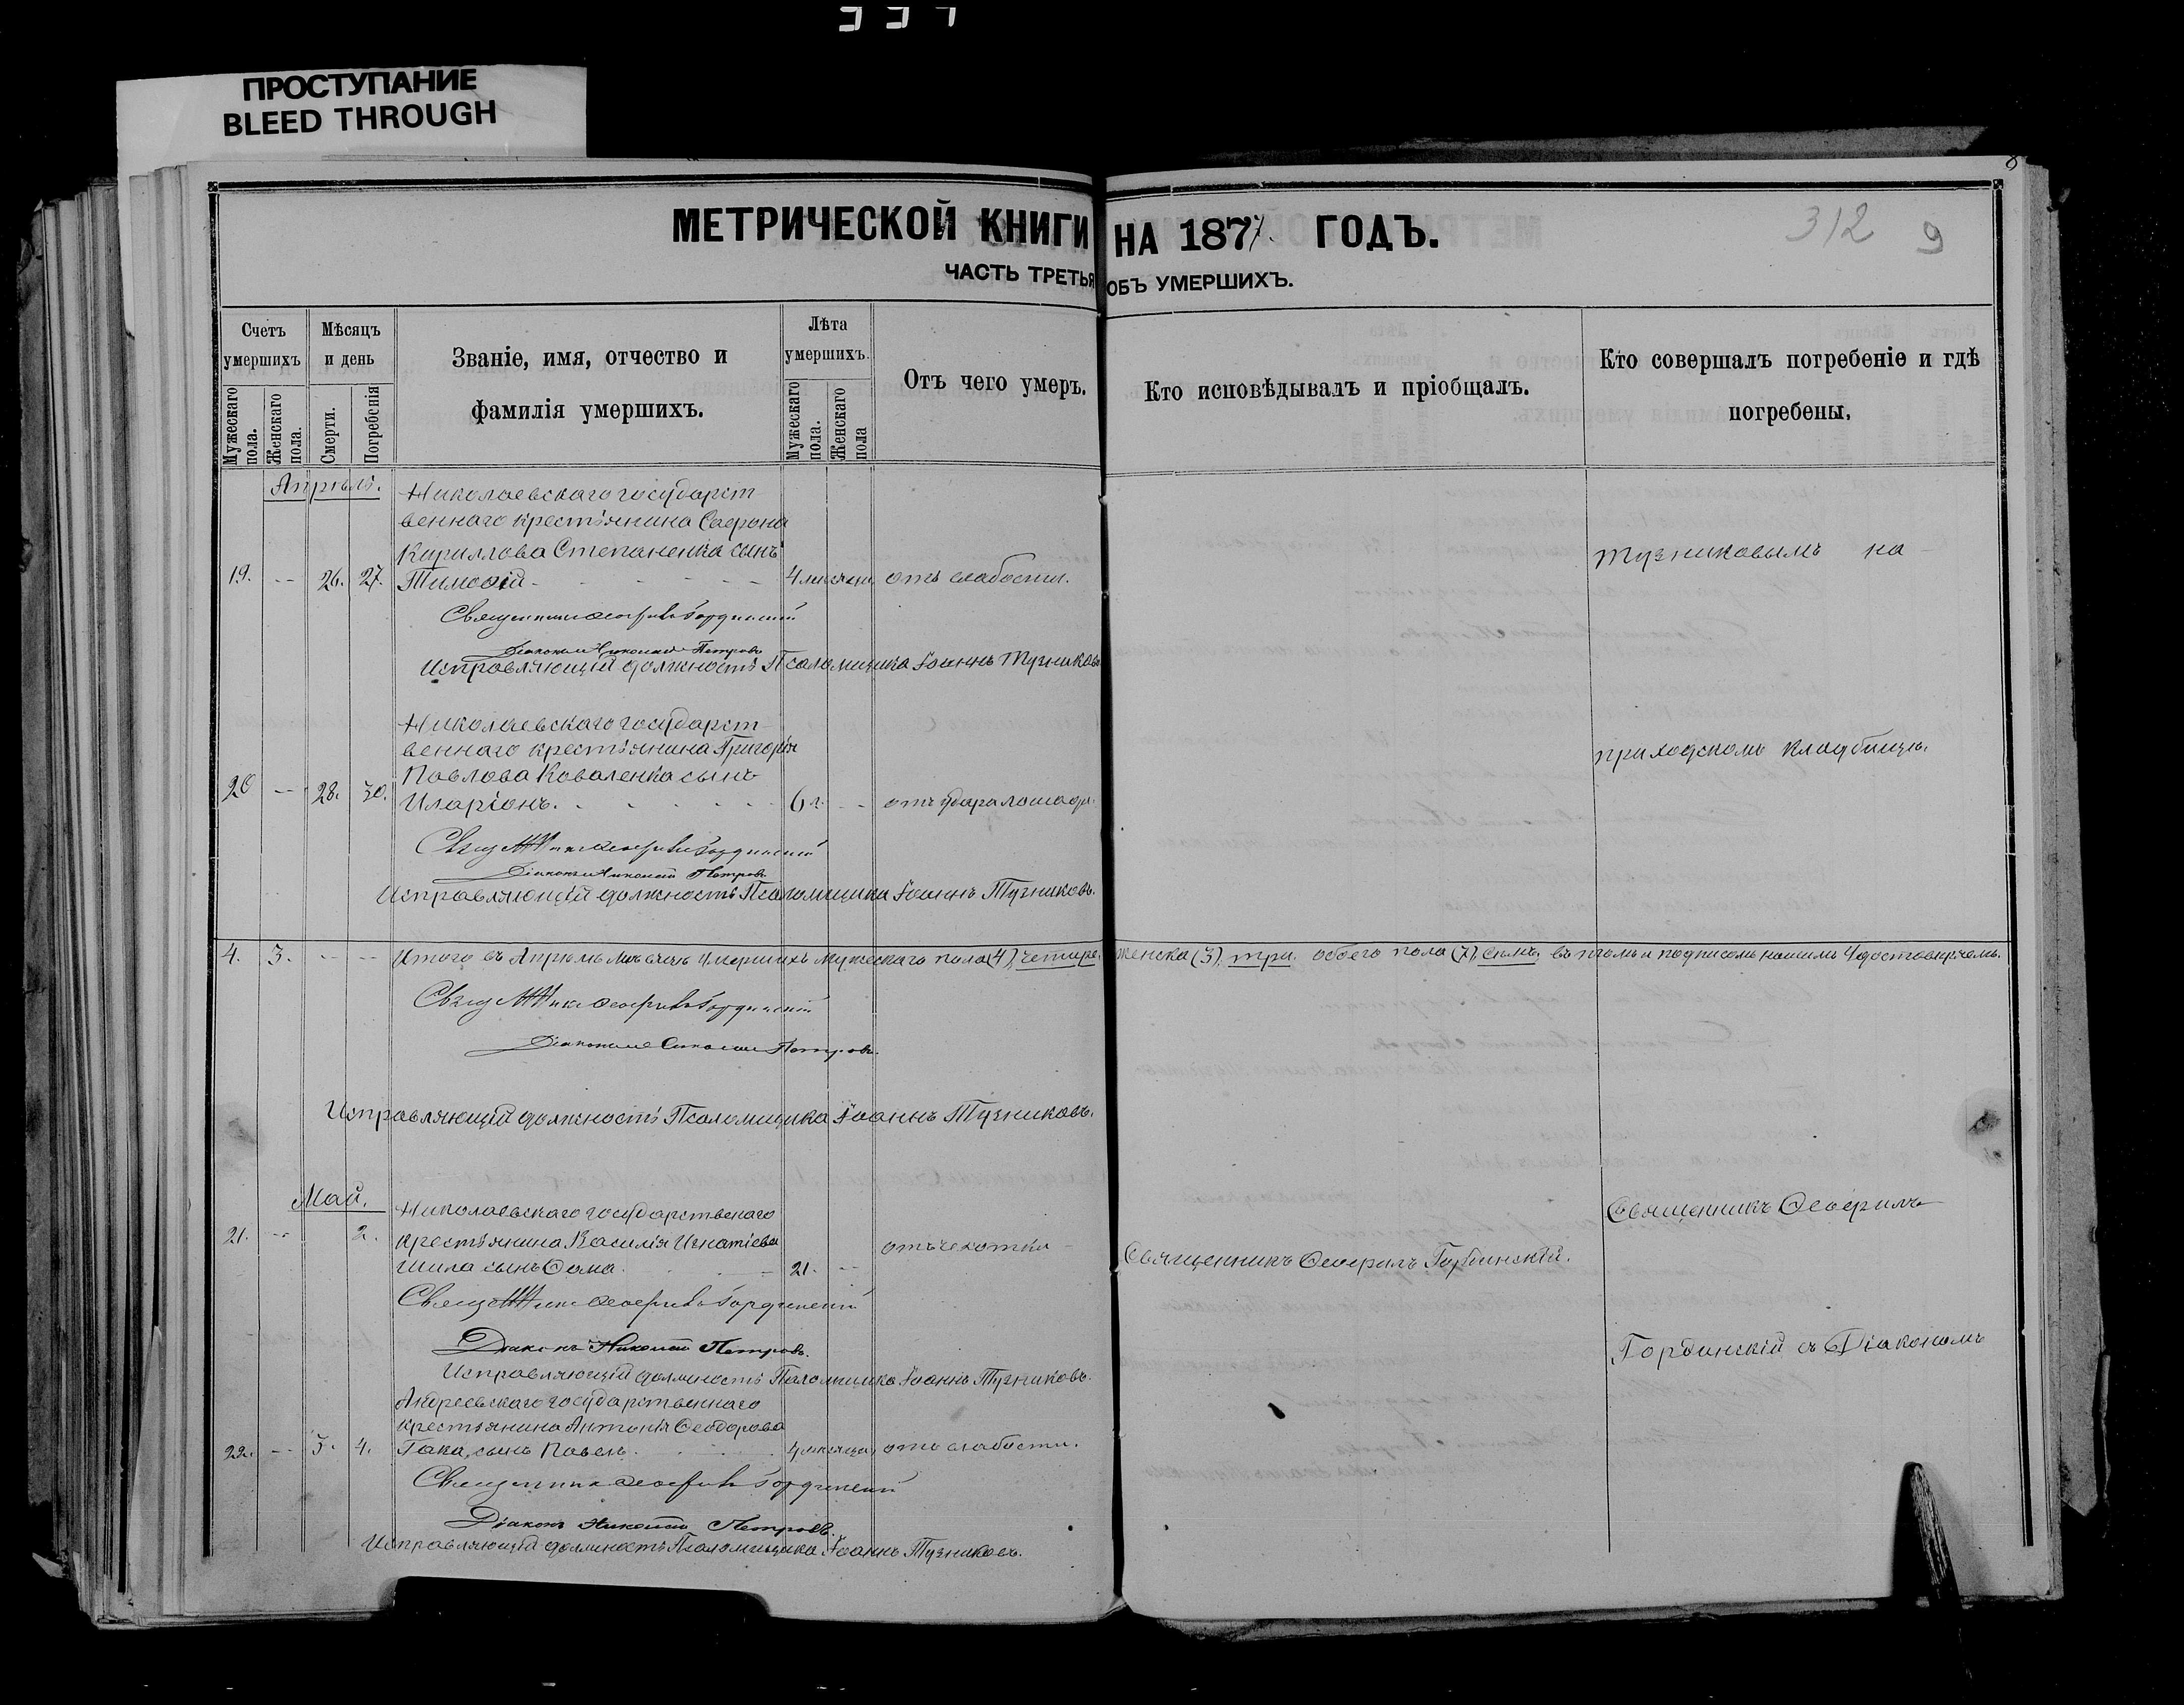 ПРОСТУПАНИЕ
BLEED THROUGH
МЕТРИЧЕСКОЙ КНИГИ НА 1877. ГОДЪ.
312 9
ЧАСТЬ ТРЕТЬЯ ОБЪ УМЕРШИХЪ.
Счетъ умершихъ
Мѣсяцъ и день
Званіе, имя, отчество и фамилія умершихъ.
Лѣта умершихъ.
Отъ чего умеръ.
Кто исповѣдывалъ и пріобщалъ.
Кто совершалъ погребеніе и гдѣ погребены.
Мужескаго пола.
Женскаго пола.
Смерти.
Погребенія
Мужескаго пола.
Женскаго пола
Апрѣль.
Николаевскаго государст
веннаго крестьянина Сафрона
Кириллова Степаненка сынъ
19. -- 26. 27. Тимоѳій 4 мѣсяца отъ слабости.
Тузниковымъ на
Священникъ Ѳеофилъ Гординскій
Діаконъ Николай Петровъ
Исправляющій должность Псаломщика Іоаннъ Тузниковъ
Николаевскаго государст
веннаго крестьянина Григорія
Павлова Коваленка сынъ
20 -- 28. 30. Иларіонъ. 6 л. -- отъ удара лошади.
приходскомъ кладбищѣ.
Гординскій
Діаконъ Николай Петровъ
Исправляющій должность Псаломщика Іоаннъ Тузниковъ.
4. 3. -- -- Итого въ Апрѣлѣ Мѣсяцѣ умершихъ мужескаго пола (4), четыре. женска (3), три. обоего пола (7), семь. въ томъ и подписомъ нашимъ Удостовѣряемъ.
Гординскій
Діаконъ Николай Петровъ.
Исправляющій должность Псаломщика Іоаннъ Тузниковъ.
Май.
Николаевскаго государственаго
21. -- 2. крестьянина Василія Игнатіева
отъ чехотки
Шила сынъ Ѳома. 21. --
Священникъ Ѳеофилъ Гординскій.
Священникъ Ѳеофилъ
Гординскій
Діаконъ Николай Петровъ.
Гординскій съ Діакономъ
Исправляющій должность Псаломщика Іоаннъ Тузниковъ.
Андреевскаго государственнаго
крестьянина Антонія Ѳеодорова
22. -- 3. 4. Гака, сынъ Павелъ. 4 мѣсяца, отъ слабости.
Священникъ Ѳеофилъ Гординскій
Діаконъ Николай Петровъ.
Исправляющій должность Псаломщика Іоаннъ Тузниковъ.